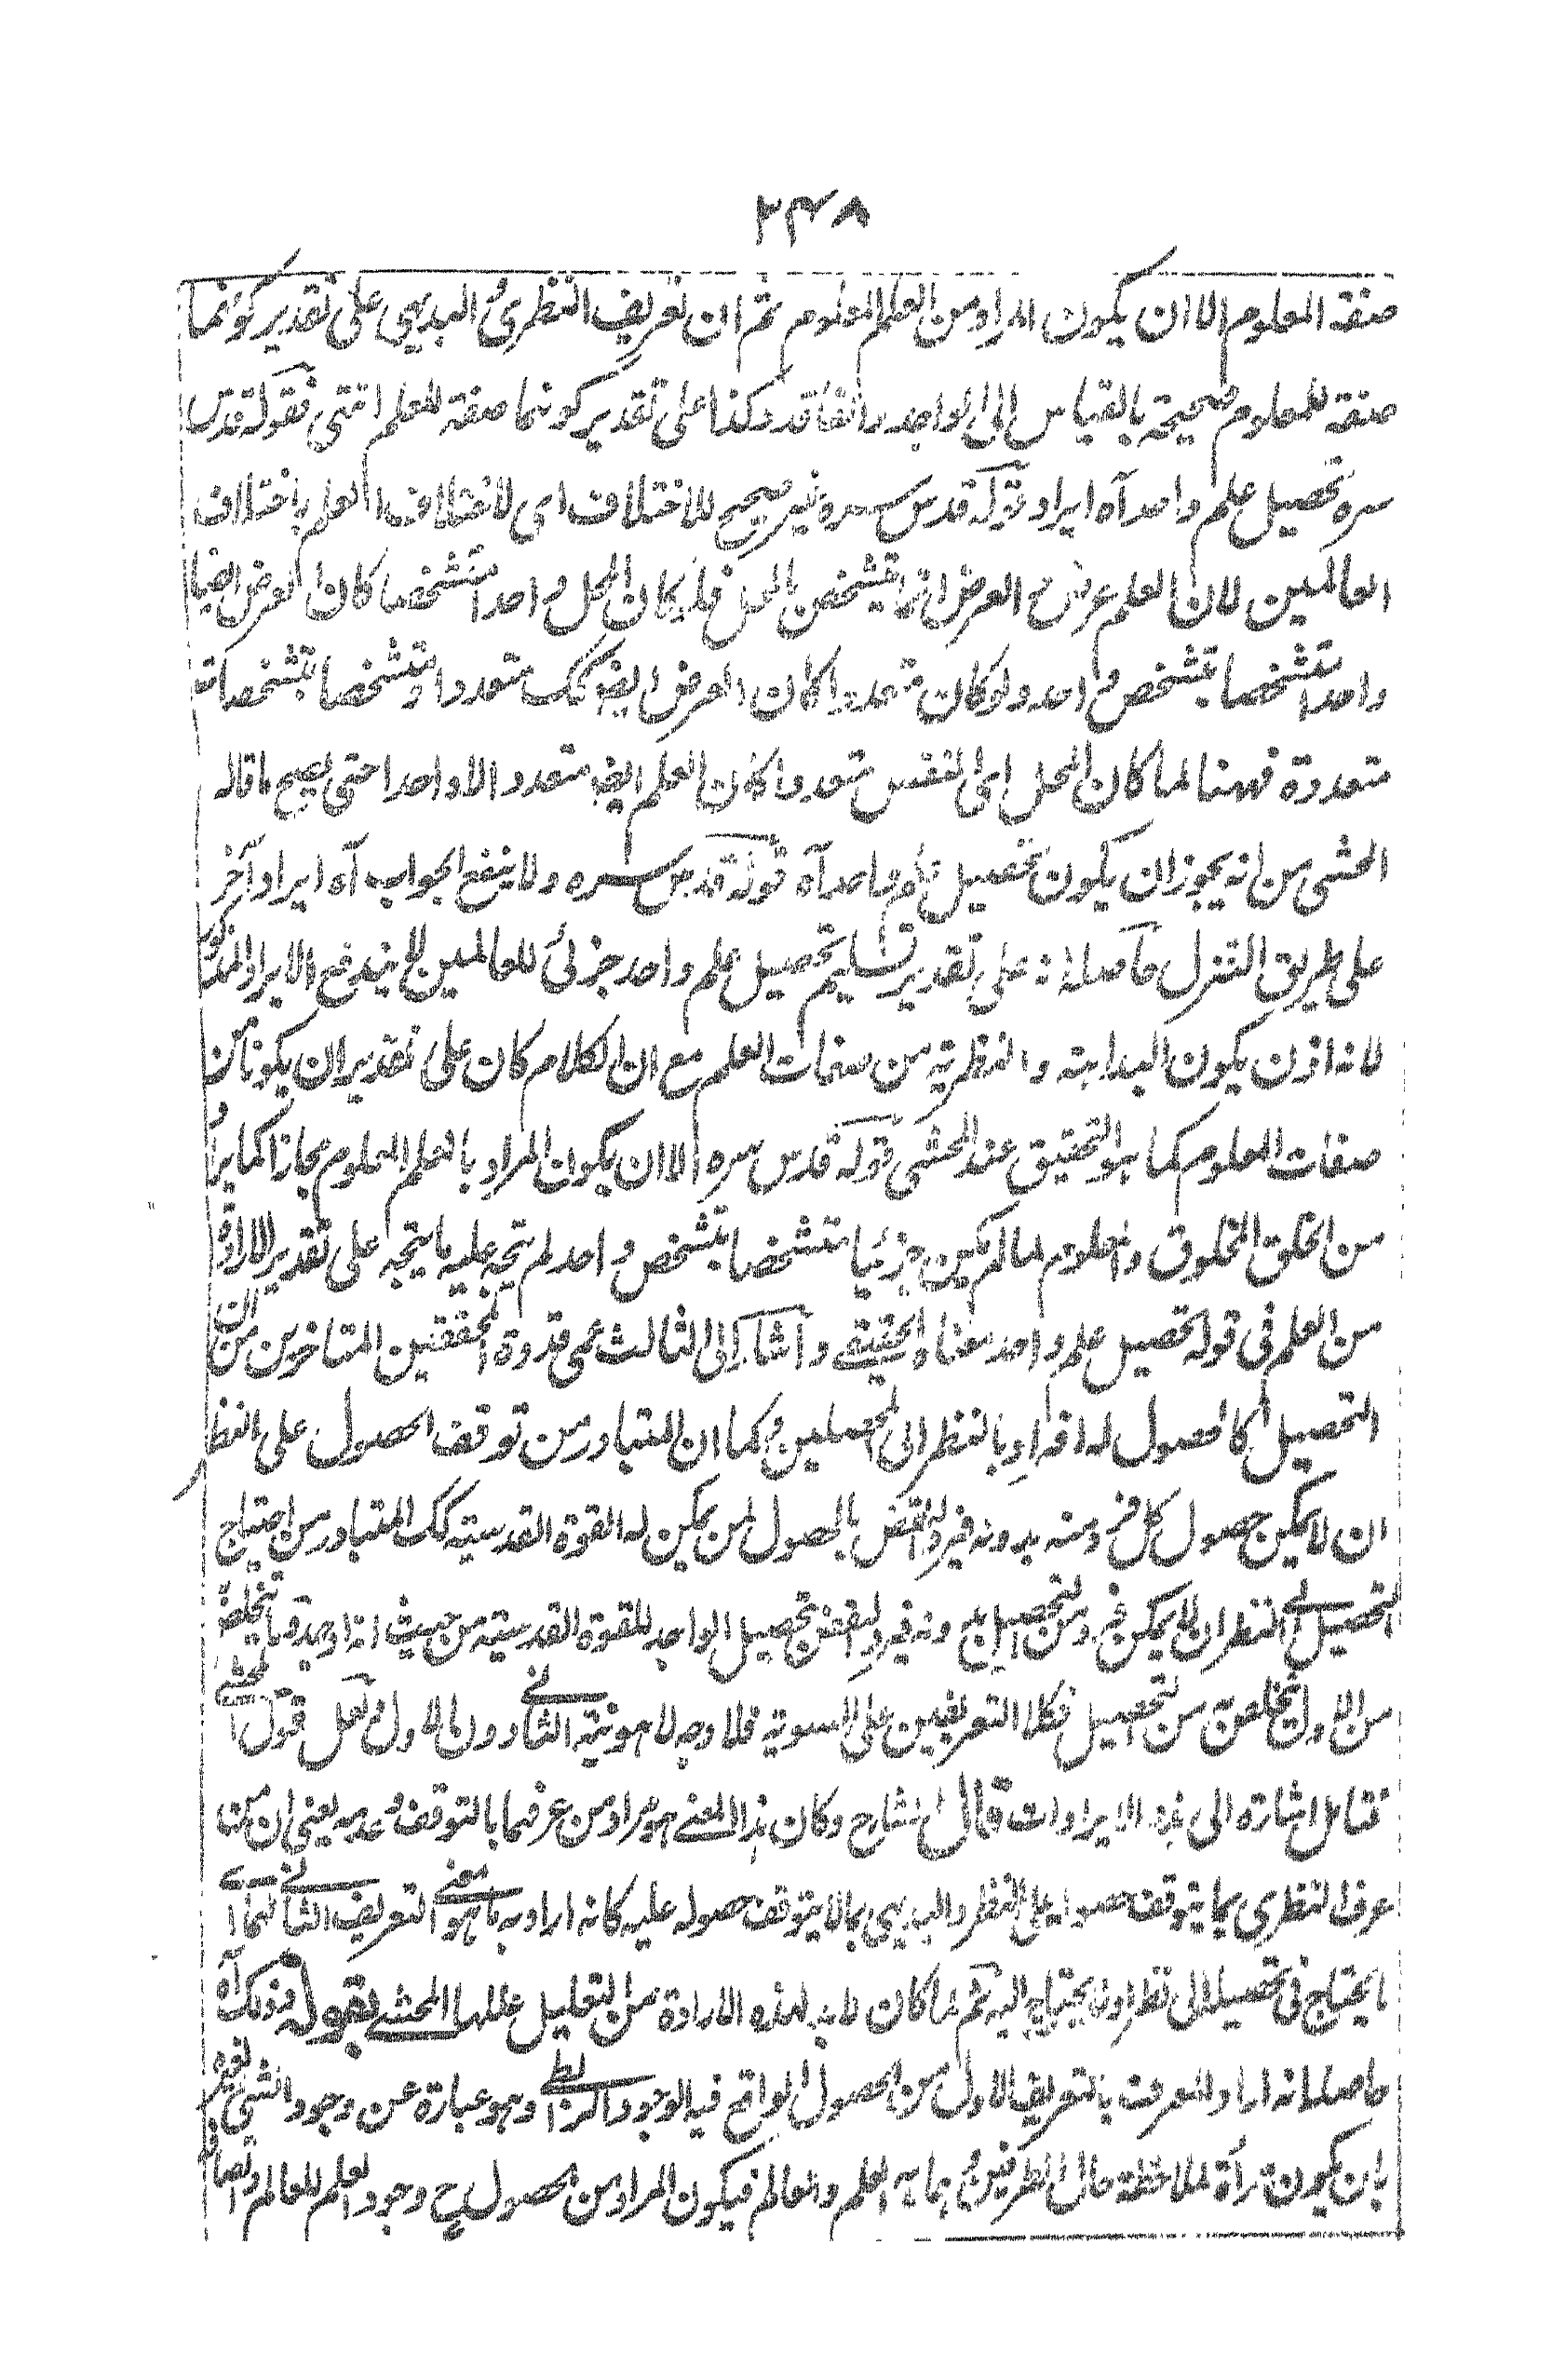 ٢٤٨
صفة المعلوم الا ان يكون المراد من العلم المعلوم ثم ان تعريف النظرى و البديهى على تقدير كونهما
صفة للمعلوم صحيحة بالقياس الى الواجد والفاقد وكذا على تقدير كونهما صفة للعلم انتهى فقوله قدس
سره تحصيل علم واحد آه ايراد قوله قدس سره غير صحيح للاختلاف اى لاختلاف العلم باختلاف
العالمين لان العلم عرض و العرض انما يتشخص بالمحل فلو كان المحل واحدا متشخصا كان العرض ايضا
واحدا متشخصا بتشخص واحد ولو كان متعددا كان العرض ايضا كك متعددا و متشخصا بتشخصات
متعددة فههنا لما كان المحل اى النفس متعددا كان العلم ايضا متعددا لا واحدا حتى يصح ما قاله
المحشى من انه يجوز ان يكون تحصيل علم واحد آه قوله قدس سره ولا ينفع الجواب آه ايراد آخر
على طريق التنزل حاصله انه على تقدير تسليم تحصيل علم واحد جزئى للعالمين لا يندفع الايراد المذكور
لانه اذن يكون البداهة والنظرية من صفات العلم مع ان الكلام كان على تقدير ان يكونا من
صفات المعلوم كما هو التحقيق عند المحشى قوله قدس سره الا ان يكون المراد بالعلم المعلوم مجازا كما يراد
من الخلق المخلوق والمعلوم لما لم يكن جزئيا متشخصا بتشخص واحد لم يتجه عليه ما يتجه على تقدير الارادة
من العلم فى قوله تحصيل علم واحد معناه الحقيقے و اشار الى الثالث عمى قدوة المحققين المتاخرين من ان
التحصيل كالحصول له افراد بالنظر الى المحصلين وكما ان المتبادر من توقف الحصول على النظر
ان لا يمكن حصول كل فرد منه بدونه فيرد النقض بالحصول لمن يمكن له القوة القدسية كك المتبادر من احتياج
التحصيل الے النظر ان لا يمكن فرد من التحصيل بدونه فيرد النقض بتحصيل الواجد للقوة القدسية من حيث انه واجد وما يتخلص
من الاول يتخلص من التحصيل فكلا التعريفين على السوية فلا وجه لاهونية الثانے دون الاول و لعل قول المحشے
فتامل اشارة الى هذه الايرادات قال الشارح وكان هذا المعنے هو مراد من عرفهما بالتوقف وعدمه يعنى ان من
عرف النظرى بما يتوقف حصوله على النظر والبديهى بما لا يتوقف حصوله عليه كانه اراد به ما هو معنے التعريف الثانے لهما اے
ما يحتاج فى تحصيله الى نظر او لا يحتاج اليه ثم لما كان لا بد لهذه الارادة من التعليل عللها المحشے بقوله فذلك آه
حاصله انه اراد المعرف بالتعريف الاول من الحصول الواقع فيه الوجود الرابطے وهو عبارة عن وجود الشئ لغيره
بان يكون مرأة لملاحظة حال الطرفين و هما ههنا العلم والعالم فيكون المراد من الحصول ح وجود العلم للعالم واتصافه